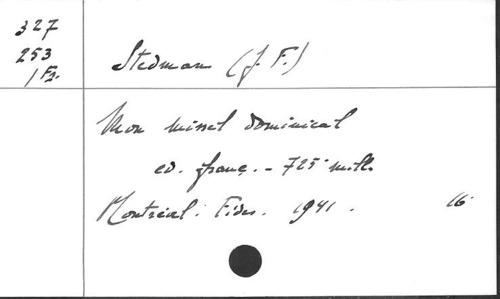 327
253
/F2.
Stedman (J. F.)
Mon missel dominical
ed. franç. - 725 mill.
Montréal. Fides. 1941. 16